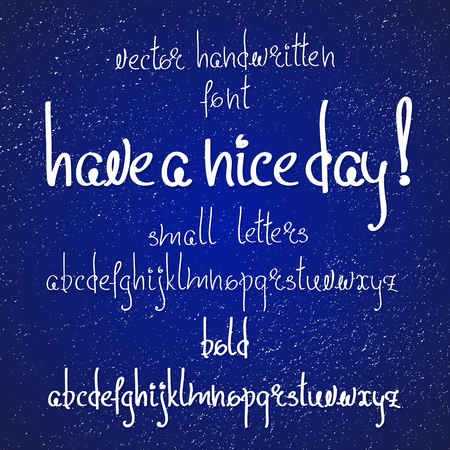 vector handwritten
font
have a nice day!
small letters
abcdefghijklmnopqrstuvwxyz
bold
abcdefghijklmnopqrstuvwxyz